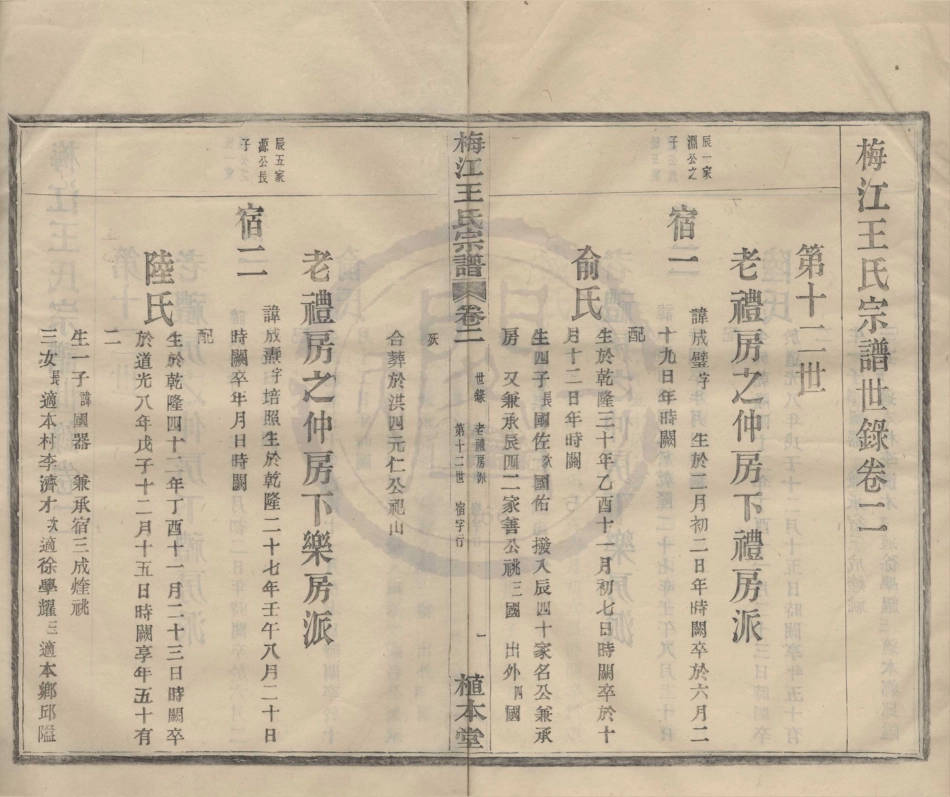 梅江王氏宗譜世錄卷二
第十二世
老禮房之仲房下禮房派
辰一家
淵公之
子
宿一
諱成璧字 生於二月初二日年時闕卒於六月二
十九日年時闕
配
俞氏
生於乾隆三十年乙酉十一月初七日時闕卒於十
月十二日年時闕
生四子長國佐次國佑 撥入辰四十家名公兼承
房 又兼承辰四二家善公祧三國 出外四國
梅江王氏宗譜 卷二
世錄 老禮房派
第十二世 宿字行
一
植本堂
殀
合葬於洪四元仁公祀山
老禮房之仲房下樂房派
辰五家
源公長
子
宿二
諱成燾字培照生於乾隆二十七年壬午八月二十日
時闕卒年月日時闕
配
陸氏
生於乾隆四十二年丁酉十一月二十三日時闕卒
於道光八年戊子十二月十五日時闕享年五十有
二
生一子諱國器 兼承宿三成煃祧
三女長適本村李濟才次適徐學耀三適本鄉邱隘